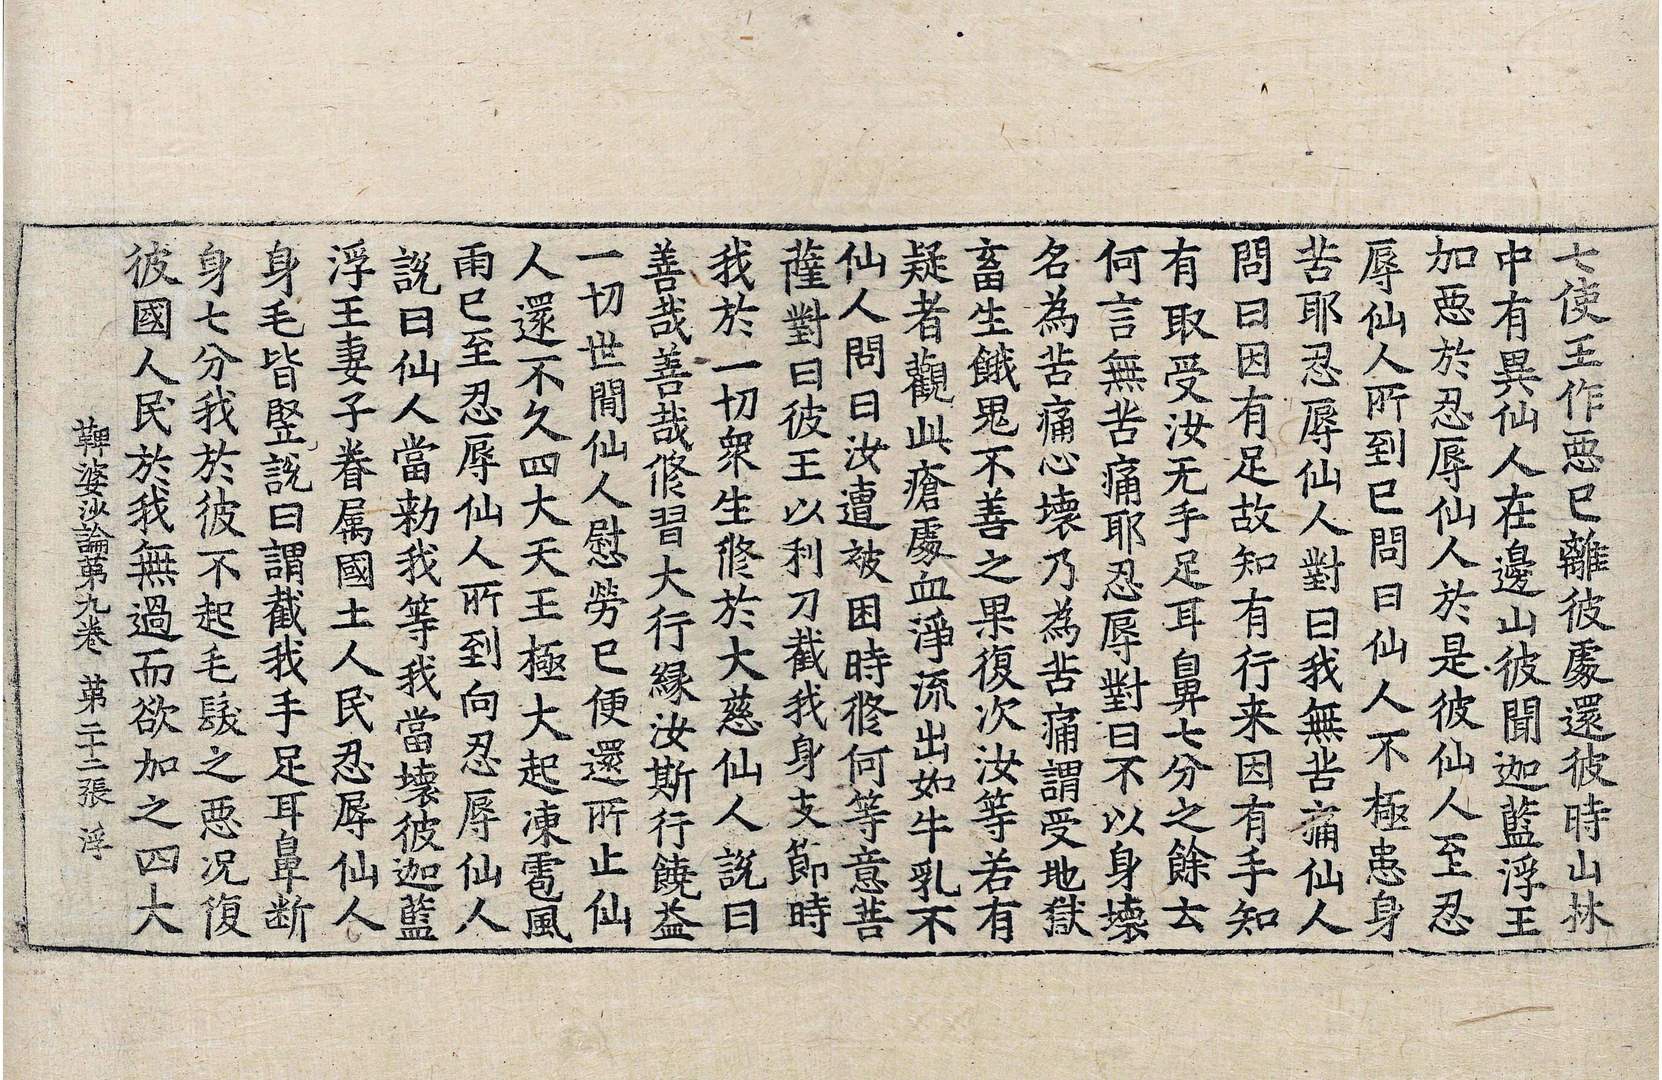 七使王作惡已離彼處還彼時山林
中有異仙人在邊山彼聞迦藍浮王
加惡於忍辱仙人於是彼仙人至忍
辱仙人所到已問曰仙人不極患身
苦耶忍辱仙人對曰我無苦痛仙人
問曰因有足故知有行来因有手知
有取受汝无手足耳鼻七分之餘去
何言無苦痛耶忍辱對曰不以身壞
名為苦痛心壞乃為苦痛謂受地獄
畜生餓鬼不善之果復次汝等若有
疑者觀此瘡處血淨流出如牛乳不
仙人問曰汝遭被困時修何等意菩
薩對曰彼王以利刀截我身支節時
我於一切衆生修於大慈仙人說曰
善哉善哉修習大行緣汝斯行饒益
一切世間仙人慰勞已便還所止仙
人還不久四大天王極大起凍雹風
雨已至忍辱仙人所到向忍辱仙人
說曰仙人當勑我等我當壞彼迦藍
浮王妻子眷属國土人民忍辱仙人
身毛皆竪說曰謂截我手足耳鼻断
身七分我於彼不起毛髮之惡况復
彼國人民於我無過而欲加之四大
鞞婆沙論第九卷 第二十二張 浮